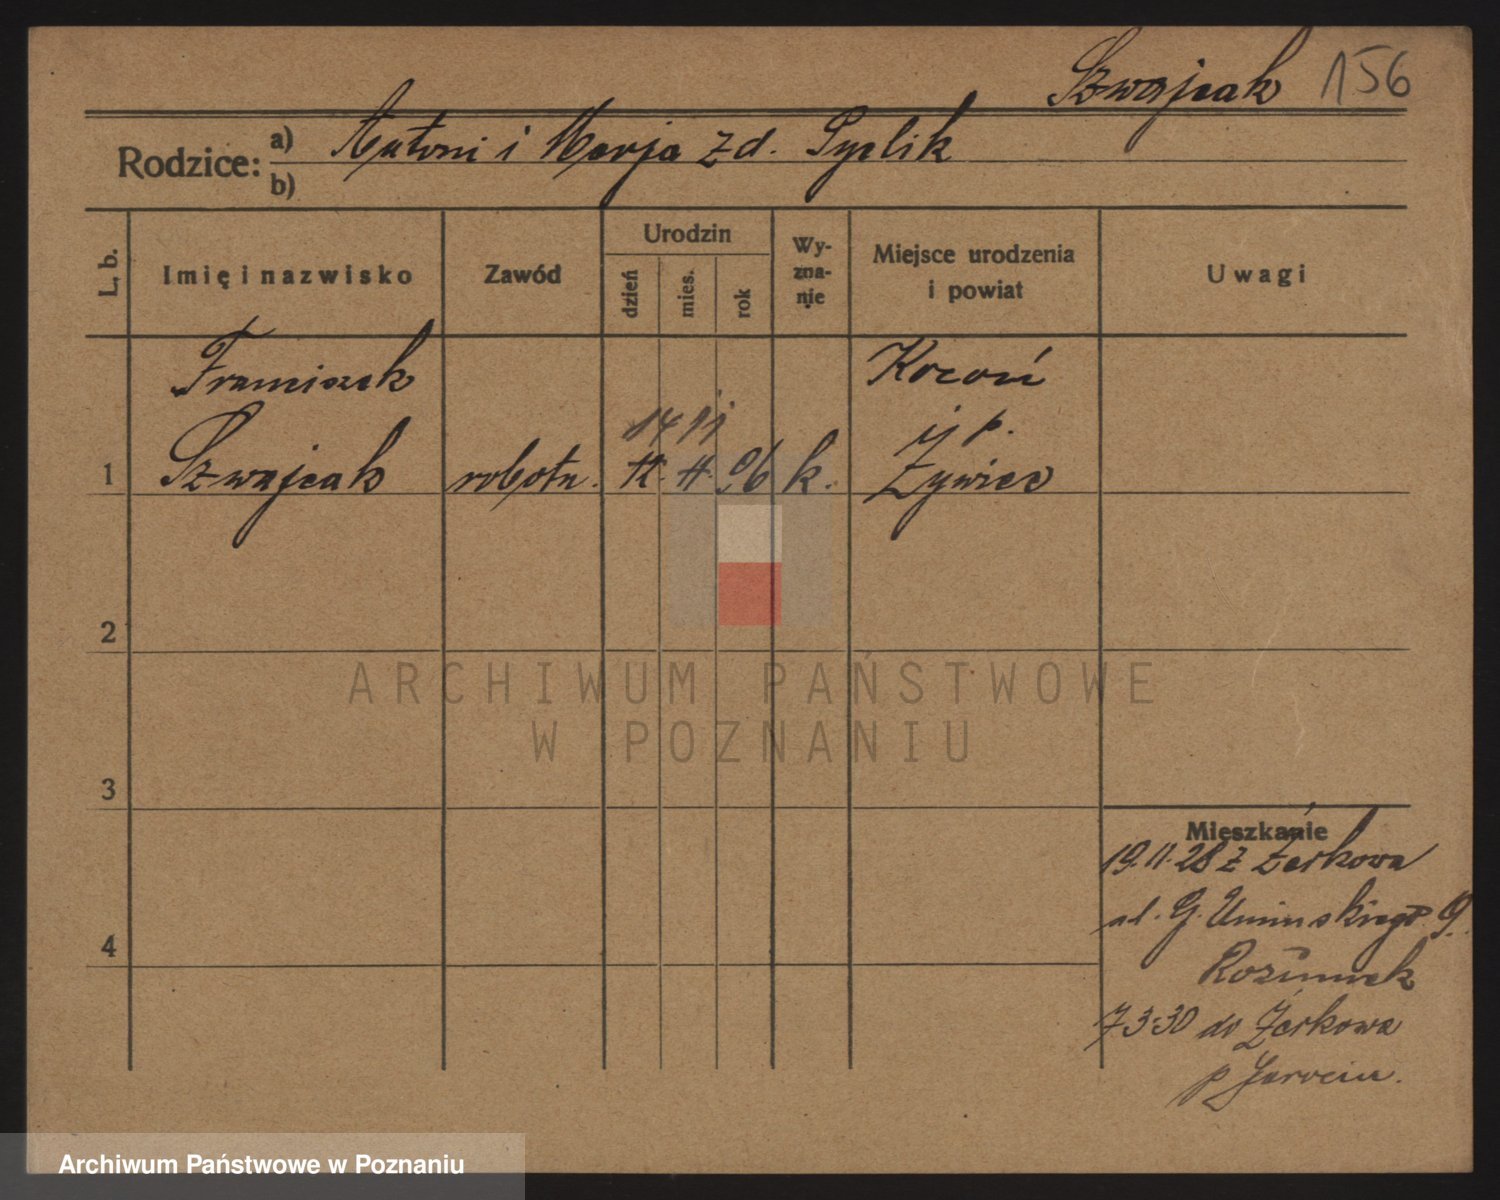 Szwajcak 156
Rodzice: a) Antoni i Marja z d. Pyclik
b)
L. b.
Imię i nazwisko
Zawód
Urodzin
dzień
mies.
rok
Wy-
zna-
nie
Miejsce urodzenia
i powiat
Uwagi
Franciszek
Kocoń
14 11
j p.
1 Szwajcak robotn. 96 k. Żywiec
2
ARCHIWUM PAŃSTWOWE
W POZNANIU
3
Mieszkanie
19.11.28 z Żerkowa
ul. G. Umińskiego 9.
4
7 3 30 do Żerkowa
p Jarocin.
Archiwum Państwowe w Poznaniu